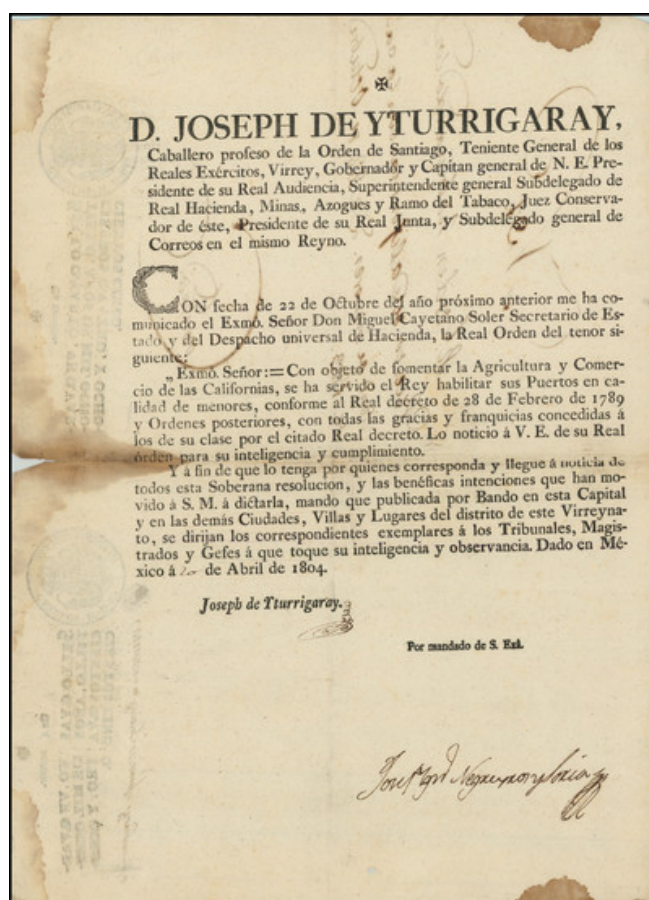 D. JOSEPH DE YTURRIGARAY,
Caballero profeso de la Orden de Santiago, Teniente General de los
Reales Exércitos, Virrey, Gobernador y Capitan general de N. E. Pre-
sidente de su Real Audiencia, Superintendente general Subdelegado de
Real Hacienda, Minas, Azogues y Ramo del Tabaco, Juez Conserva-
dor de éste, Presidente de su Real Junta, y Subdelegado general de
Correos en el mismo Reyno.
CON fecha de 22 de Octubre del año próximo anterior me ha co-
municado el Exmô. Señor Don Miguel Cayetano Soler Secretario de Es-
tado y del Despacho universal de Hacienda, la Real Orden del tenor si-
guiente:
„Exmô. Señor:=Con objeto de fomentar la Agricultura y Comer-
cio de las Californias, se ha servido el Rey habilitar sus Puertos en ca-
lidad de menores, conforme al Real decreto de 28 de Febrero de 1789
y Ordenes posteriores, con todas las gracias y franquicias concedidas á
los de su clase por el citado Real decreto. Lo noticio á V. E. de su Real
órden para su inteligencia y cumplimiento.
Y á fin de que lo tenga por quienes corresponda y llegue á noticia de
todos esta Soberana resolucion, y las benéficas intenciones que han mo-
vido á S. M. á dictarla, mando que publicada por Bando en esta Capital
y en las demás Ciudades, Villas y Lugares del distrito de este Virreyna-
to, se dirijan los correspondientes exemplares á los Tribunales, Magis-
trados y Gefes á que toque su inteligencia y observancia. Dado en Mé-
xico á de Abril de 1804.
Joseph de Yturrigaray.
Por mandado de S. Exâ.